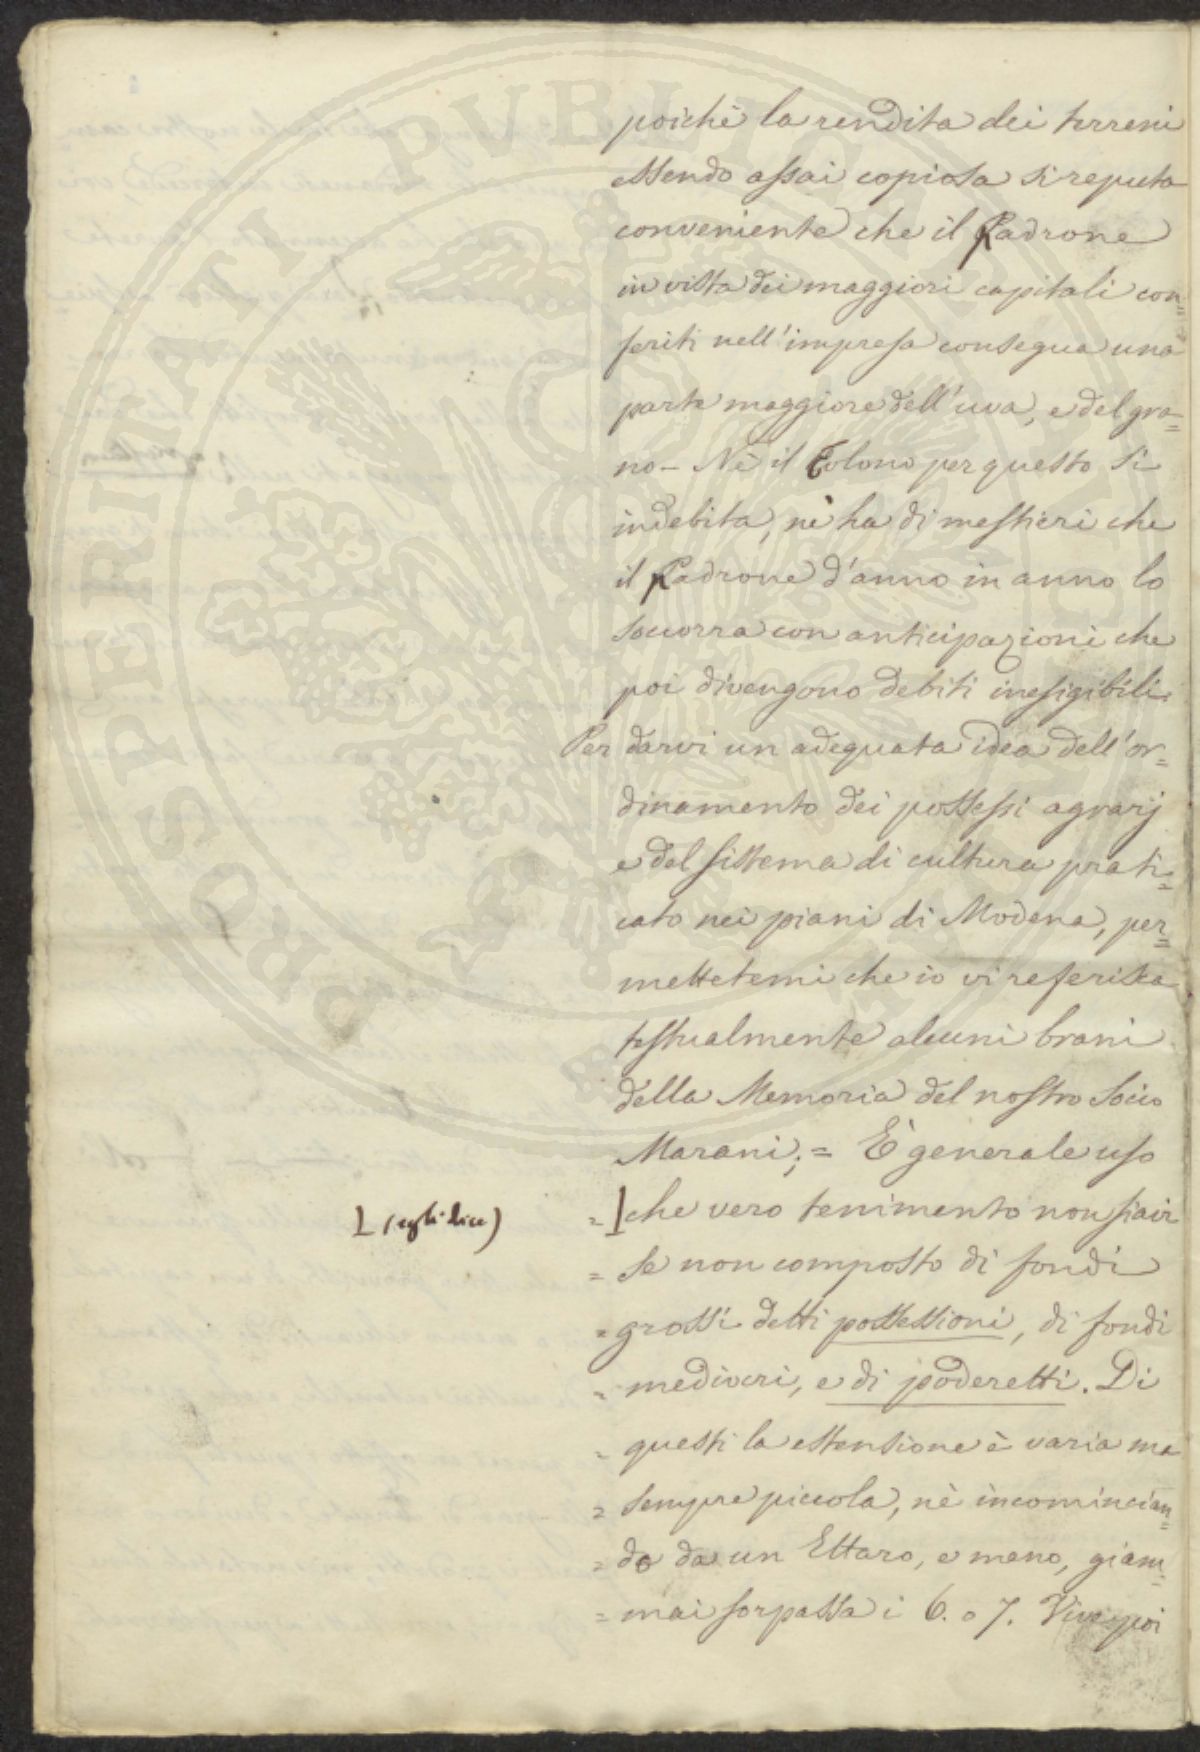 poichè la rendita dei terreni
essendo assai copiosa si reputa
conveniente che il Padrone
in vista dei maggiori capitali con=
feriti nell'impresa consegua una
parte maggiore dell'uva, e del gra=
no - Nè il Colono per questo si
indebita, nè ha di mestieri che
il Padrone d'anno in anno lo
soccorra con anticipazioni che
poi divengono debiti inesigibili.
Per darvi un adeguata idea dell'or=
dinamento dei possessi agrarj
e del sistema di cultura prati=
cato nei piani di Modena, per=
mettetemi che io vi referisca
testualmente alcuni brani
della Memoria del nostro Socio
Marani; = È generale uso
⊥ (egli dice)
= ⌉che vero tenimento non siavi
= se non composto di fondi
= grossi detti possessioni, di fondi
= mediocri, e di poderetti. Di
= questi la estensione è varia ma
= sempre piccola, nè incomincian=
= do da un Ettaro, e meno, giam=
= mai sorpassa i 6. o 7. Vive poi
PROSPERITATI PVBLICAE